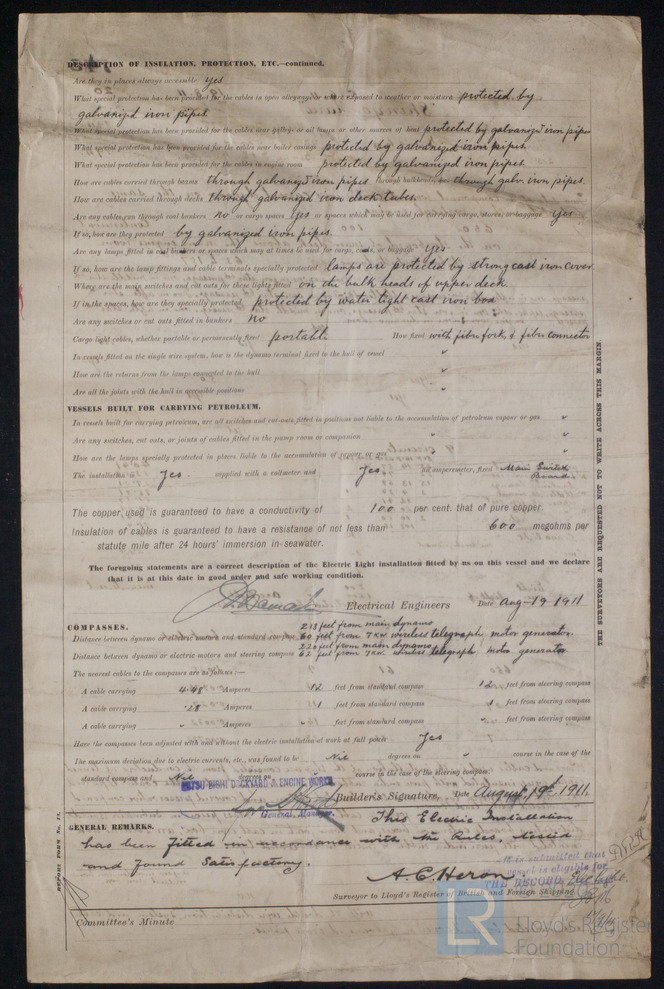 DESCRIPTION OF INSULATION, PROTECTION, ETC.—continued.
Are they in places always accessible yes
What special protection has been provided for the cables in open alleyways or where exposed to weather or moisture protected by
galvanized iron pipes.
What special protection has been provided for the cables near galleys or oil lamps or other sources of heat protected by galvanized iron pipes
What special protection has been provided for the cables near boiler casings protected by galvanized iron pipes.
What special protection has been provided for the cables in engine room protected by galvanized iron pipes.
How are cables carried through beams through galvanized iron pipes through bulkheads, &c. through galv. iron pipes.
How are cables carried through decks through galvanized iron deck tubes.
Are any cables run through coal bunkers no or cargo spaces yes or spaces which may be used for carrying cargo, stores, or baggage yes
If so, how are they protected by galvanized iron pipes.
Are any lamps fitted in coal bunkers or spaces which may at times be used for cargo, coals, or baggage yes
If so, how are the lamp fittings and cable terminals specially protected lamps are protected by strong cast iron cover
Where are the main switches and cut outs for these lights fitted on the bulk heads of upper deck
If in the spaces, how are they specially protected protected by water tight cast iron box
Are any switches or cut outs fitted in bunkers no
Cargo light cables, whether portable or permanently fixed portable How fixed with fibre fork & fibre connector
In vessels fitted on the single wire system, how is the dynamo terminal fixed to the hull of vessel "
How are the returns from the lamps connected to the hull "
Are all the joints with the hull in accessible positions "
VESSELS BUILT FOR CARRYING PETROLEUM.
In vessels built for carrying petroleum, are all switches and cut-outs fitted in positions not liable to the accumulation of petroleum vapour or gas "
Are any switches, cut outs, or joints of cables fitted in the pump room or companion " "
How are the lamps specially protected in places liable to the accumulation of vapour or gas "
The installation is Yes. supplied with a voltmeter and Yes. an amperemeter, fixed Main Switch
Board
The copper used is guaranteed to have a conductivity of 100 per cent. that of pure copper.
Insulation of cables is guaranteed to have a resistance of not less than 600 megohms per
statute mile after 24 hours' immersion in seawater.
The foregoing statements are a correct description of the Electric Light installation fitted by us on this vessel and we declare
that it is at this date in good order and safe working condition.
Electrical Engineers Date Aug–19 1911
COMPASSES.
213 feet from main dynamo
Distance between dynamo or electric motors and standard compass 60 feet from 7KW wireless telegraph motor generator.
220 feet from main dynamo
Distance between dynamo or electric motors and steering compass 62 feet from 7KW wireless telegraph motor generator
The nearest cables to the compasses are as follows:—
A cable carrying 4.48 Amperes 12 feet from standard compass 12 feet from steering compass
A cable carrying .28 Amperes 1 feet from standard compass 1 feet from steering compass
A cable carrying " Amperes " feet from standard compass " feet from steering compass
Have the compasses been adjusted with and without the electric installation at work at full power Yes
The maximum deviation due to electric currents, etc., was found to be Nil degrees on " course in the case of the
standard compass and Nil course in the case of the steering compass.
MITSU BISHI DOCKYARD & ENGINE WORKS
General Manager. Builder's Signature. Date August 19th, 1911.
GENERAL REMARKS. This Electric Installation
has been fitted in accordance with the Rules, tested
and found Satisfactory.
It is submitted that
this vessel is eligible for
THE RECORD. Elec. Light.
A. C. Heron
Surveyor to Lloyd's Register of British and Foreign Shipping
Committee's Minute
REPORT FORM No. 13.
THE SURVEYORS ARE REQUESTED NOT TO WRITE ACROSS THIS MARGIN.
LR
Lloyd's Register
Foundation